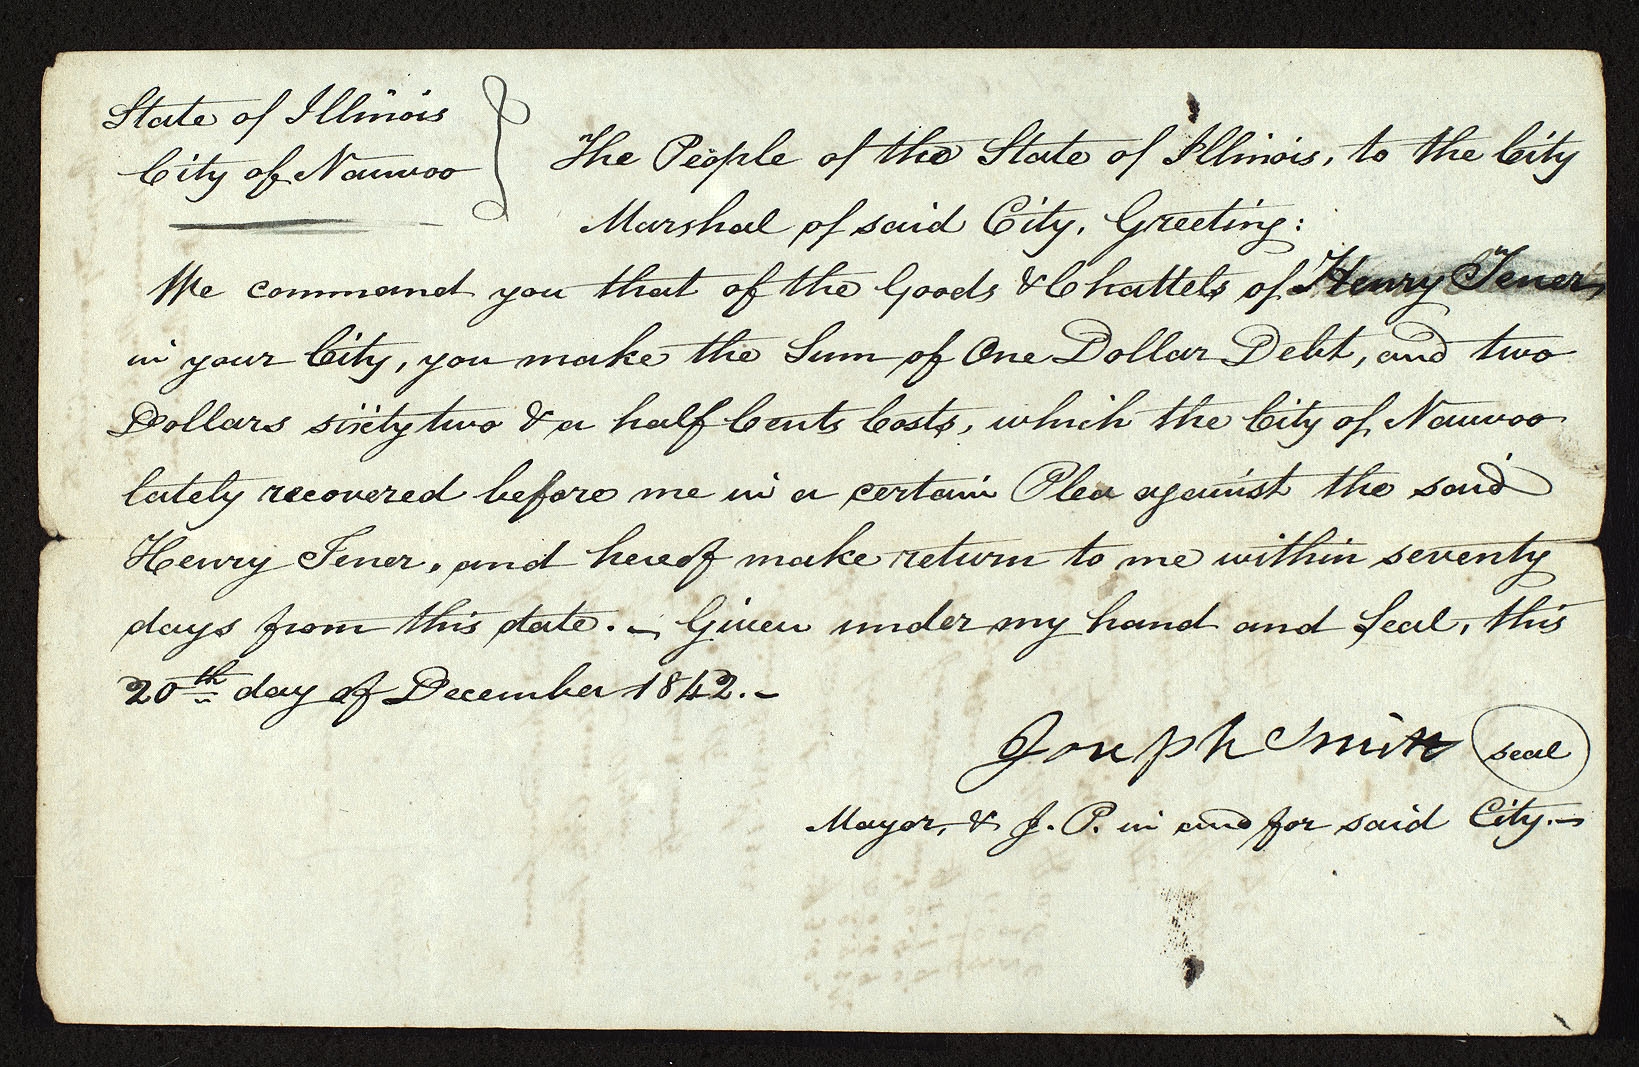 State of Illinois
City of Nauvoo
The People of the State of Illinois, to the City
Marshal of said City, Greeting:
We command you that of the Goods & Chattels of Henry Tener,
in your City, you make the Sum of One Dollar Debt, and two
Dollars sixty two & a half Cents Costs, which the City of Nauvoo
lately recovered before me in a certain Plea against the said
Henry Tener, and hereof make return to me within seventy
days from this date. — Given under my hand and Seal, this
20th day of December 1842. —
Joseph Smith seal
Mayor, & J. P. in and for said City. —